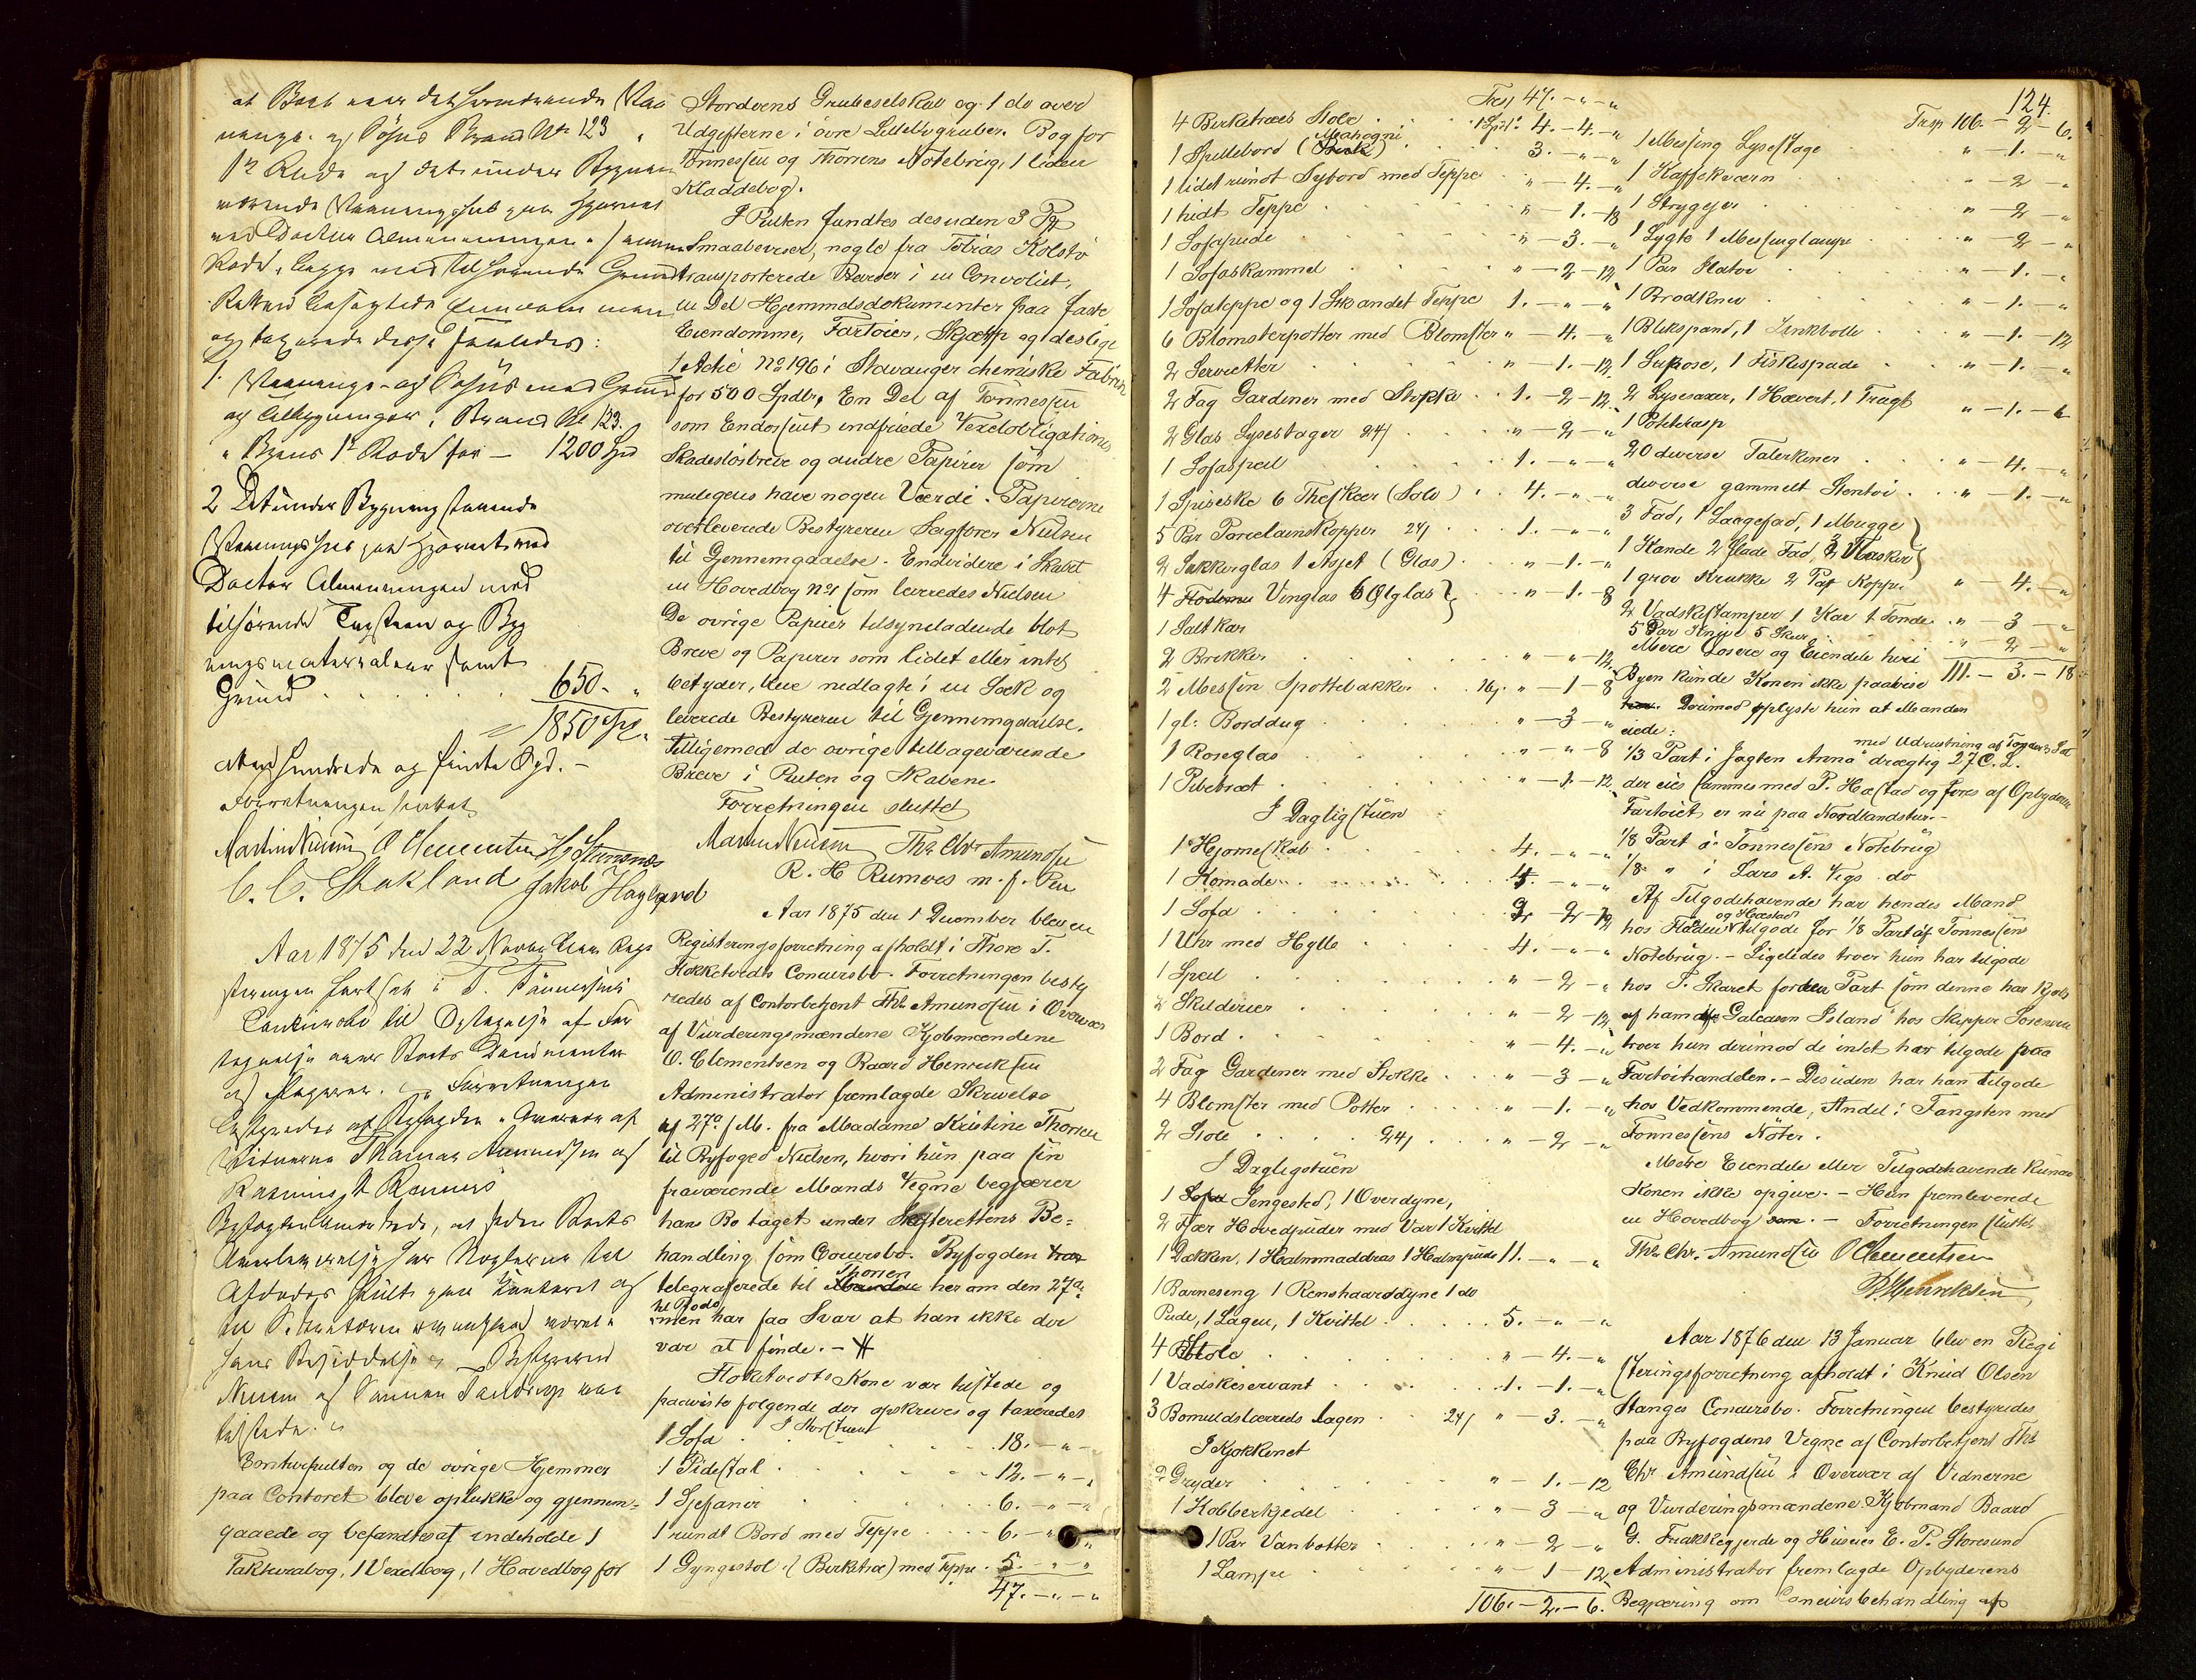 at Boet
og Søhus Brand No 123
1ste Rode og det under Bygning
værende Vaaningshus paa Hjørnet
ved Doctor Almenningen
Rode, begge med tilhørende Grund
Retten besigtede Eiendommene
og taxerede disse saaledes:
1. Vaanings- og Søhus med Grund
og Tilbygninger, Brand No 123.
i Byens 1ste Rode for — 1200 Spd
2 Det under Bygning staaende
Vaaningshus paa Hjørnet ved
Doctor Almenningen med
tilhørende og Byg
ningsmaterialier samt
Grund . . . 650. "
1850 Spd.
atten hundrede og femti Spd. —
Forretningen sluttet
Martin Nielsen O Clementsen
C. C. Stakland Jakob Haugland
Aar 1875 den 22 Novbr blev Regi
streringen fortsat i T. Tønnesens
Concursbo til Optagelse af For
tegnelse over Boets Documenter
og Papirer. Forretningen
bestyredes af Byfogden i Overvær af
Vidnerne Thomas Amundsen og
Rasmus H Rumøes
Byfogden bemærkede, at siden Boets
Overleverelse har Nøglerne til
Afdødes Pult paa Kontoret og
til
hans Besiddelse. — Bestyreren
Nielsen og var
tilstede.
Contorpulten og de øvrige Hjemmer
paa Contoret bleve oplukke og gjennem-
gaaede og befandtes at indeholde 1
Fakturabog, 1 Vexelbog, 1 Hovedbog for
Stordøens Grubeselskab og 1 do over
Udgifterne i øvre Lillebøgruber. Bog for
Tønnessen og Thorsens Notebrug, 1 liden
Kladdebog.
I Pulten fandtes desuden 3 Pk
Smaabeviser, nogle fra Tobias Kolstø
transporterede Beviser i en Convolut,
en Del Hjemmelsdokumenter paa faste
Eiendomme, Fartøier, Skjøtt og deslige
1 Actie No 196 i Stavanger chemiske Fabrik
for 500 Spdlr. En Del af Tønnessen
som Endossent indfriede Vexelobligationer
Skadesløsbreve og andre Papirer som
muligens have nogen Værdi. Papirerne
overleverede Bestyreren Sagfører Nielsen
til Gjennemgaaelse. Endvidere i Skabet
en Hovedbog No 1 som leveredes Nielsen
De øvrige Papirer tilsyneladende blot
Breve og Papirer som lidet eller intet
betyder, bleve nedlagte i en Sæk og
leverede Bestyreren til Gjennemgaaelse.
Tilligemed de øvrige tilbageværende
Breve i Pulten og Skabene.
Forretningen sluttet
Martin Nielsen Ths Chr Amundsen
R. H Rumøes m. f. Pen
Aar 1875 den 1 December blev en
Registreringsforretning afholdt i Thore T.
Flokketvedts Concursbo. Forretningen besty
redes af Contorbetjent Ths Amundsen i Overvær
af Vurderingsmændene Kjøbmændene
O. Clementsen og Baard Henriksen
Administrator fremlagde Skrivelse
af 27de f M. fra Madame Kristine Thorsen
til Byfoged Nielsen, hvori hun paa sin
fraværende Mands Vegne begjærer
hans Bo taget under Skifterettens Be-
handling som Concursbo. Byfogden har
telegraferede til Manden Thorsen her om den 27de
til Bodø
men har faa Svar at han ikke der
var at finde. —
Flokketvedts Kone var tilstede og
paaviste følgende der opskreves og taxeredes
I Storstuen
1 Sofa . . . 18. — " — "
1 Pidestal . . . 12. — " — "
1 Sjefonier . . . 6. — " — "
1 rundt Bord med Teppe . . . 6. — " — "
1 Gyngestol (Birketræ) med Teppe . 5. — " — "
47. — " — "
Trsp 47. — " — "
4 Birketræes Stole . . . 1 Spd. 4. — 4. — "
1 Spillebord (Birk Mahogni) . . . 3. — " — "
1 lidet rundt Sybord med Teppe . . " — 4. — "
1 hidt Teppe . . . " — 1. — 18
1 Sofapude . . . " — 3. — "
1 Sofaskammel . . . " — 2 — 12
1 Sofateppe og 1 Skandet Teppe 1. — " — "
6 Blomsterpotter med Blomster " — 4. — "
2 Servietter . . . " — 1. — 12
2 Fag Gardener med Stokke . . 1. — 2 — 12
2 Glas Lysestager 24/ . . . " — 2 — "
1 Sofaspeil . . . 1. — " — "
1 Spiseske 6 Theskeer (Sølv) . . 4. — " — "
5 Par Porcelainskopper 24/ . . . 1. — " — "
2 Sukkerglas 1 Asjet (Glas) . . . " — 1. — "
4 Flødemu Vinglas 6 Ølglas } . . " — 1. — 8
1 Saltkar
2 Brikker . . . " — " — 12
2 Messin Spottebakker . . 16/. " — 1 — 8
1 gl: Borddug . . . " — 3 — "
1 Roseglas . . . " — " — 8
1 Pibebræt . . . " — 1. — 12
I Dagligstuen
1 Hjørneskab . . . 4. — " — "
1 Komode . . . 4. — " — "
1 Sofa . . . 2 — 2 — 12
1 Uhr med Hylle . . . 4. — " — "
1 Speil . . . " — 2 — "
2 Skilderier . . . " — 2 — 12
1 Bord . . . " — 4. — "
2 Fag Gardener med Stokke . . . " — 3 — "
4 Blomster med Potter . . . " — 1. — "
2 Stole . . . 24/ . . " — 2 — "
I Dagligstuen
1 Sofa Sengested, 1 Overdyne,
2 Fjær Hovedpuder med Var 1 Kvittel
1 Dækken, 1 Halmmaddras 1 Halmpude 11. — " — "
1 Barneseng 1 Renshaarsdyne 1 do
Pude, 1 Lagen, 1 Kvittel . . . 5. — " — "
4 Stole . . . " — 4. — "
1 Vadskeservant . . . 1. — 1. — "
3 Bomuldslærreds Lagen . . 24/ " — 3. — "
I Kjøkkenet
2 Gryder . . . " — 1. — 12
1 Kobberkjedel . . . " — 3 — "
1 Par Vanbøtter . . . " — 2 — "
1 Lampe . . . " — 1 — 12
106. — 2. — 6.
124.
Trsp 106. — 2 — 6.
1 Messing Lysestage . . . " — 1. — "
1 Kaffekværn . . . " — 2 — "
1 Strygejer . . . " — 2 — "
1 Lygte 1 Messinglampe . . . " — 2 — "
1 Par . . . " — 1. — "
1 Brødkniv . . . " — 1. — "
1 Blikspand, 1 Zinkbolle . . . " — 1. — 12
1 Supøse, 1 Fiskespade . . . " — 1. — "
2 Lysesaxer, 1 Hævert, 1 Tragt . . " — 1. — 6
1 Pottekasp
20 diverse Talerkener . . . " — 4. — "
diverse gammelt Stentøi . . . " — 1. — "
3 Fad, 1 Laagefad, 1 Mugge }
1 Kande 2 flade Fad, 3 Flasker }
1 grov Krukke 2 Par Kopper " — 4. — "
2 Vadskestamper 1 Kar 1 Tønde . " — 3 — "
5 Par Knive 5 Skeer . . . " — 2 — "
Mere Løsøre og Eiendele heri 111. — 3. — 18
Byen kunde Konen ikke paavise
Derimod oplyste hun at Manden
eiede:
med Udrustning af
1/3 Part i Jagten "Anna" drægtig 27 C. L.
der eies sammes med P. Hæstad og føres af Opbyderen
Fartøiet er nu paa Nordlandstur. —
1/8 Part i Tønnessens Notebrug
1/8 " i Lars A. Vegs do
Af Tilgodehavende har hendes Mand
og Hæstad
hos Floden tilgode for 1/8 Part af Tønnessens
Notebrug. — Ligeledes troer hun har tilgode
hos P. Skaret for den Part som denne har kjøbt
af ham i Galeasen "Island" hos Skipper Sørensen
troer hun derimod de intet har tilgode paa
Fartøihandelen. — Desuden har han tilgode
hos Vedkommende, Andel i Fangsten med
Tønnessens Nøter.
Mere Eiendele eller Tilgodehavende kunde
Konen ikke opgive. — Hun fremleverede
en Hovedbog. — Forretningen sluttet
Ths Chr. Amundsen O Clementsen
B. Henriksen
Aar 1876 den 13 Januar blev en Regi
streringsforretning afholdt i Knud Olsen
Stanges Concursbo. Forretningen bestyredes
paa Byfogdens Vegne af Contorbetjent Ths
Chr Amundsen i Overvær af Vidnerne
og Vurderingsmændene Kjøbmand Baard
G. Frakkegjerde og Huseier E. P. Storesund
Administrator fremlagde Opbyderens
Begjæring om Concursbehandling af